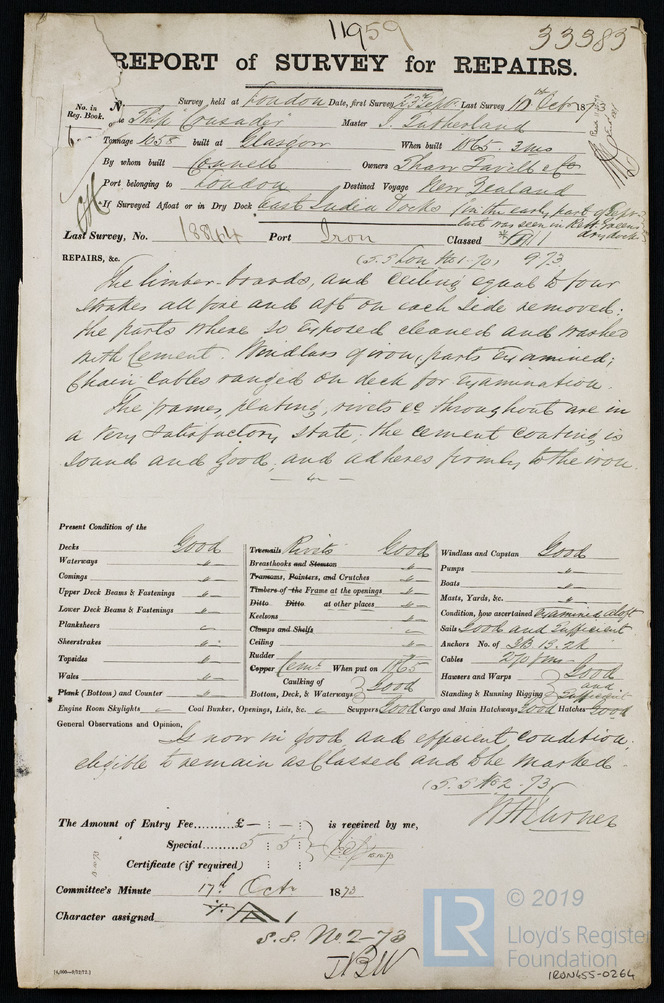 11959
33383
REPORT of SURVEY for REPAIRS.
No. in Reg. Book.
No. Survey held at London Date, first Survey 23rd Sept. Last Survey 10th Octr 1873
the Ship "Crusader" Master J. Sutherland
Tonnage 1058 built at Glasgow When built 1865 3 ms
By whom built Connell Owners Shaw Savill & Co
Port belonging to London Destined Voyage New Zealand
If Surveyed Afloat or in Dry Dock East India Docks (in the early part of Septr
last was seen in Green's dry dock)
Last Survey, No. 13844 Port Iron Classed A1
REPAIRS, &c. (S.S Lon No 1-70) 9 73
The limber-boards, and ceiling equal to four
strakes all fore and aft on each side removed;
the parts where so exposed cleaned and washed
with Cement. Windlass of iron, parts examined;
Chain cables ranged on deck for examination.
The frames, plating, rivets &c throughout are in
a very satisfactory state; the cement coating is
sound and good, and adheres firmly to the iron.
Present Condition of the
Decks Good
Waterways "
Comings "
Upper Deck Beams & Fastenings "
Lower Deck Beams & Fastenings "
Planksheers
Sheerstrakes "
Topsides "
Wales "
Plank (Bottom) and Counter "
Treenails Rivets Good
Breasthooks and Stemson "
Transoms, Pointers, and Crutches "
Timbers of the Frame at the openings "
Ditto Ditto at other places "
Keelsons "
Clamps and Shelfs
Ceiling "
Rudder "
Copper Cemt. When put on 1865
Caulking of Bottom, Deck, & Waterways } Good
Windlass and Capstan Good
Pumps "
Boats "
Masts, Yards, &c. "
Condition, how ascertained Examined aloft
Sails Good and Sufficient
Anchors No. of 3B. 1S. 2K
Cables 270 fms
Hawsers and Warps } Good and
Standing & Running Rigging } Sufficient
Engine Room Skylights Coal Bunker, Openings, Lids, &c. Scuppers Good Cargo and Main Hatchways Good Hatches Good
General Observations and Opinion,
Is now in good and efficient condition;
eligible to remain as Classed and to be marked
(S.S No 2. 73)
The Amount of Entry Fee......... £ - : - : is received by me,
Special......... 5 : 5 :
Certificate (if required)
Committee's Minute 17th Octr 1873
Character assigned A 1
S.S. No. 2-73
© 2019
LR
Lloyd's Register
Foundation
IRON455-0264